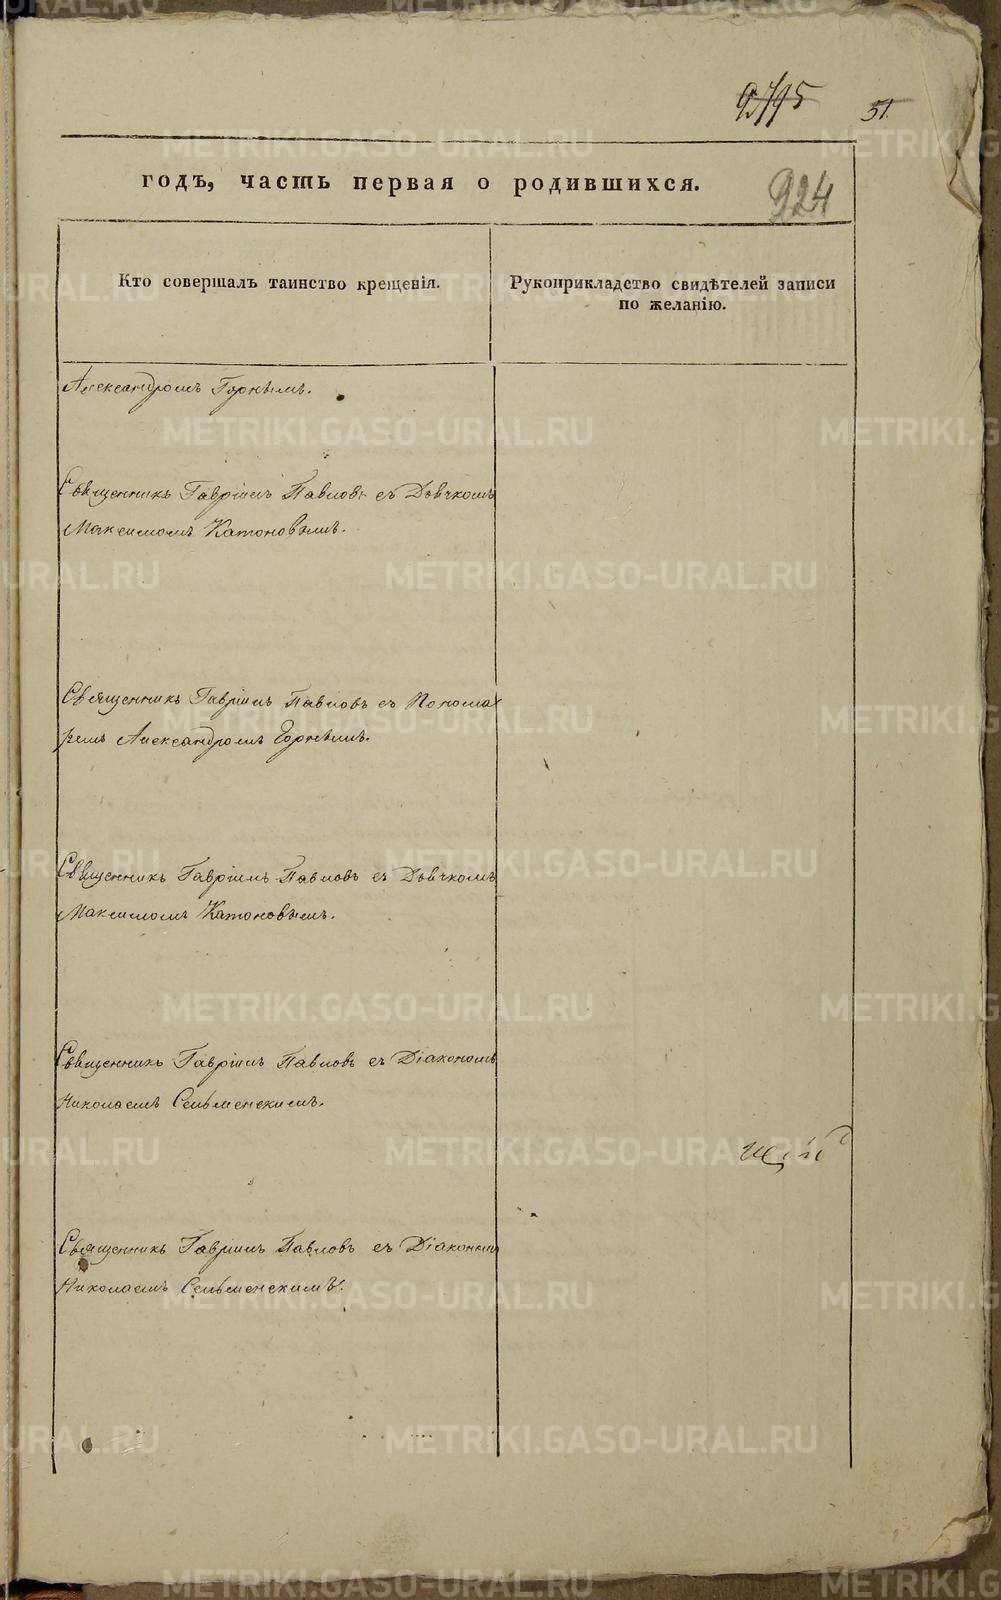 51.
годъ, часть первая о родившихся.
924
Кто совершалъ таинство крещенія.
Рукоприкладство свидѣтелей записи
по желанію.
Александромъ Горнымъ.
Священникъ Гавріилъ Павловъ съ Дьячкомъ
Максимомъ Катоновымъ.
Священникъ Гавріилъ Павловъ съ Понома
ремъ Александромъ Горнымъ.
Священникъ Гавріилъ Павловъ съ Дьячкомъ
Максимомъ Катоновымъ.
Священникъ Гавріилъ Павловъ съ Діакономъ
Николаемъ Сельменскимъ.
Священникъ Гавріилъ Павловъ съ Діакономъ
Николаемъ Сельменскимъ.
METRIKI.GASO-URAL.RU